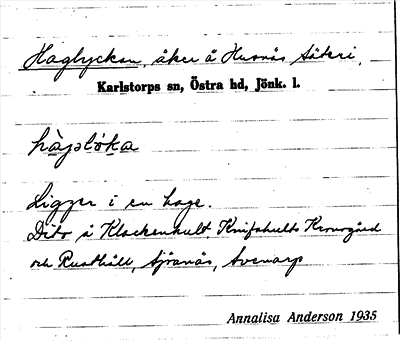 Haglyckan, åker å Husnäs säteri,
Karlstorps sn, Östra hd, Jönk. l.
hàgslỏ́ka
Ligger i en hage.
Dito å Klockenhult, Knifshults Kronogård
och Rusthåll, Sjöanäs, Svenarp
Annalisa Anderson 1935